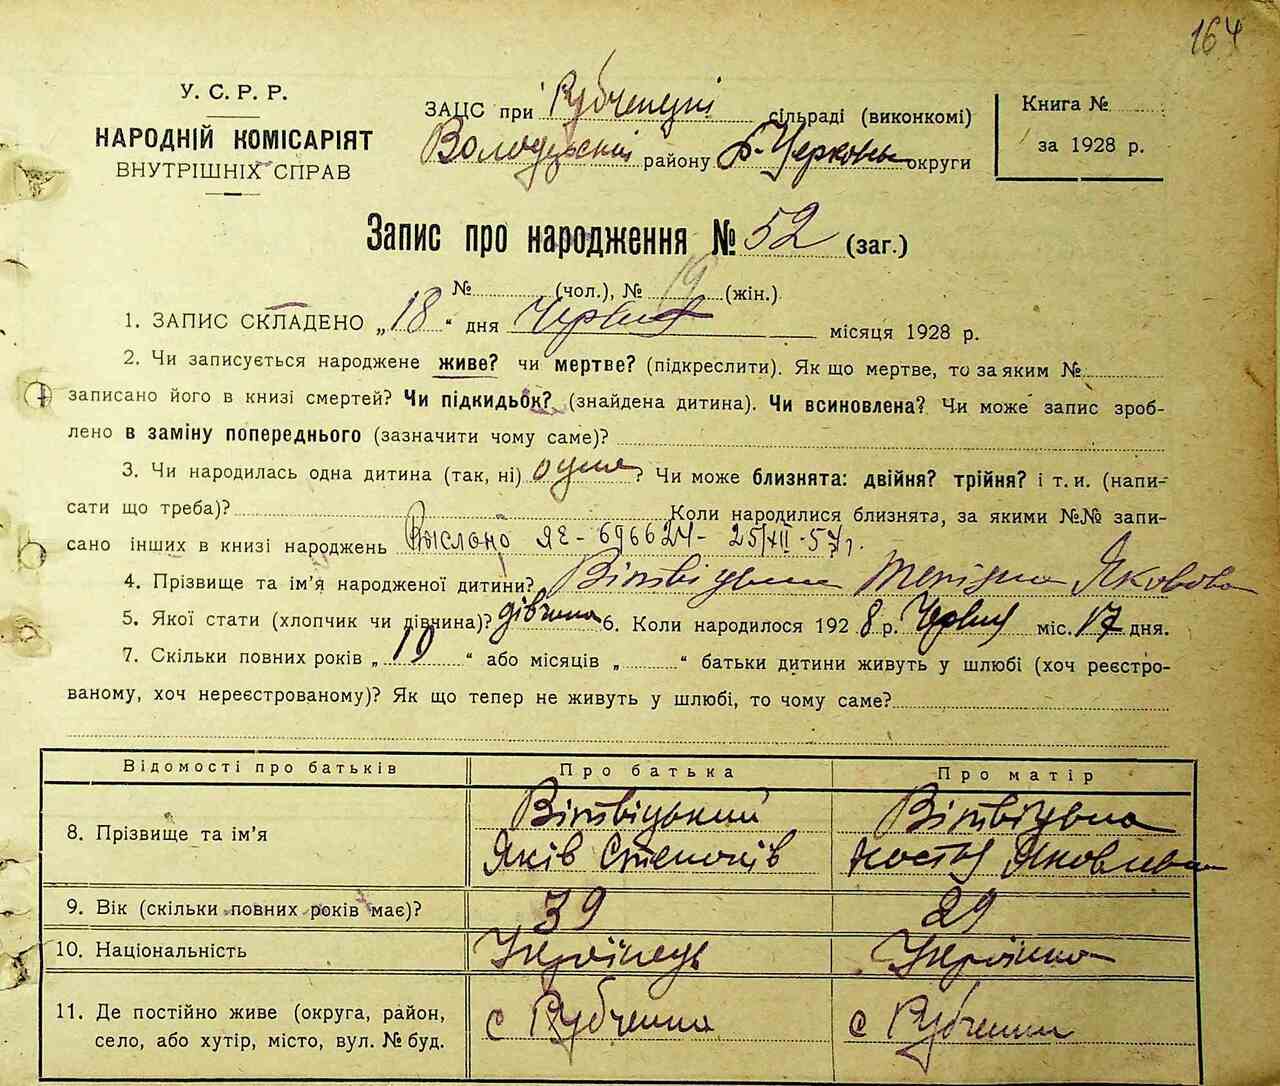 164
У. С. Р. Р.
НАРОДНІЙ КОМІСАРІЯТ
ВНУТРІШНІХ СПРАВ
ЗАЦС при Рубченцкі сільраді (виконкомі)
Володарській району Б-Церковь округи
Книга №
за 1928 р.
Запис про народження № 52 (заг.)
№ (чол.), № 19 (жін.)
1. ЗАПИС СКЛАДЕНО „18" дня Червня місяця 1928 р.
2. Чи записується народжене живе? чи мертве? (підкреслити). Як що мертве, то за яким №
записано його в книзі смертей? Чи підкидьок? (знайдена дитина). Чи всиновлена? Чи може запис зроб-
лено в заміну попереднього (зазначити чому саме)?
3. Чи народилась одна дитина (так, ні) одна? Чи може близнята: двійня? трійня? і т. и. (напи-
сати що треба)? Коли народилися близнята, за якими №№ запи-
сано інших в книзі народжень Выслано ЯЕ-696624- 25/XII-57г.
4. Прізвище та ім'я народженої дитини? Вітвіцька Яковова
5. Якої стати (хлопчик чи дівчина)? дівчина 6. Коли народилося 1928 р. Червня міс. 17 дня.
7. Скільки повних років „10" або місяців „ " батьки дитини живуть у шлюбі (хоч реєстро-
ваному, хоч нереєстрованому)? Як що тепер не живуть у шлюбі, то чому саме?
Відомості про батьків Про батька Про матір
8. Прізвище та ім'я Вітвіцький Яків Степанів Вітвіцька Яковлевна
9. Вік (скільки повних років має)? 39 29
10. Національність Українець Українка
11. Де постійно живе (округа, район,
село, або хутір, місто, вул. № буд. с Рубченки с Рубченки